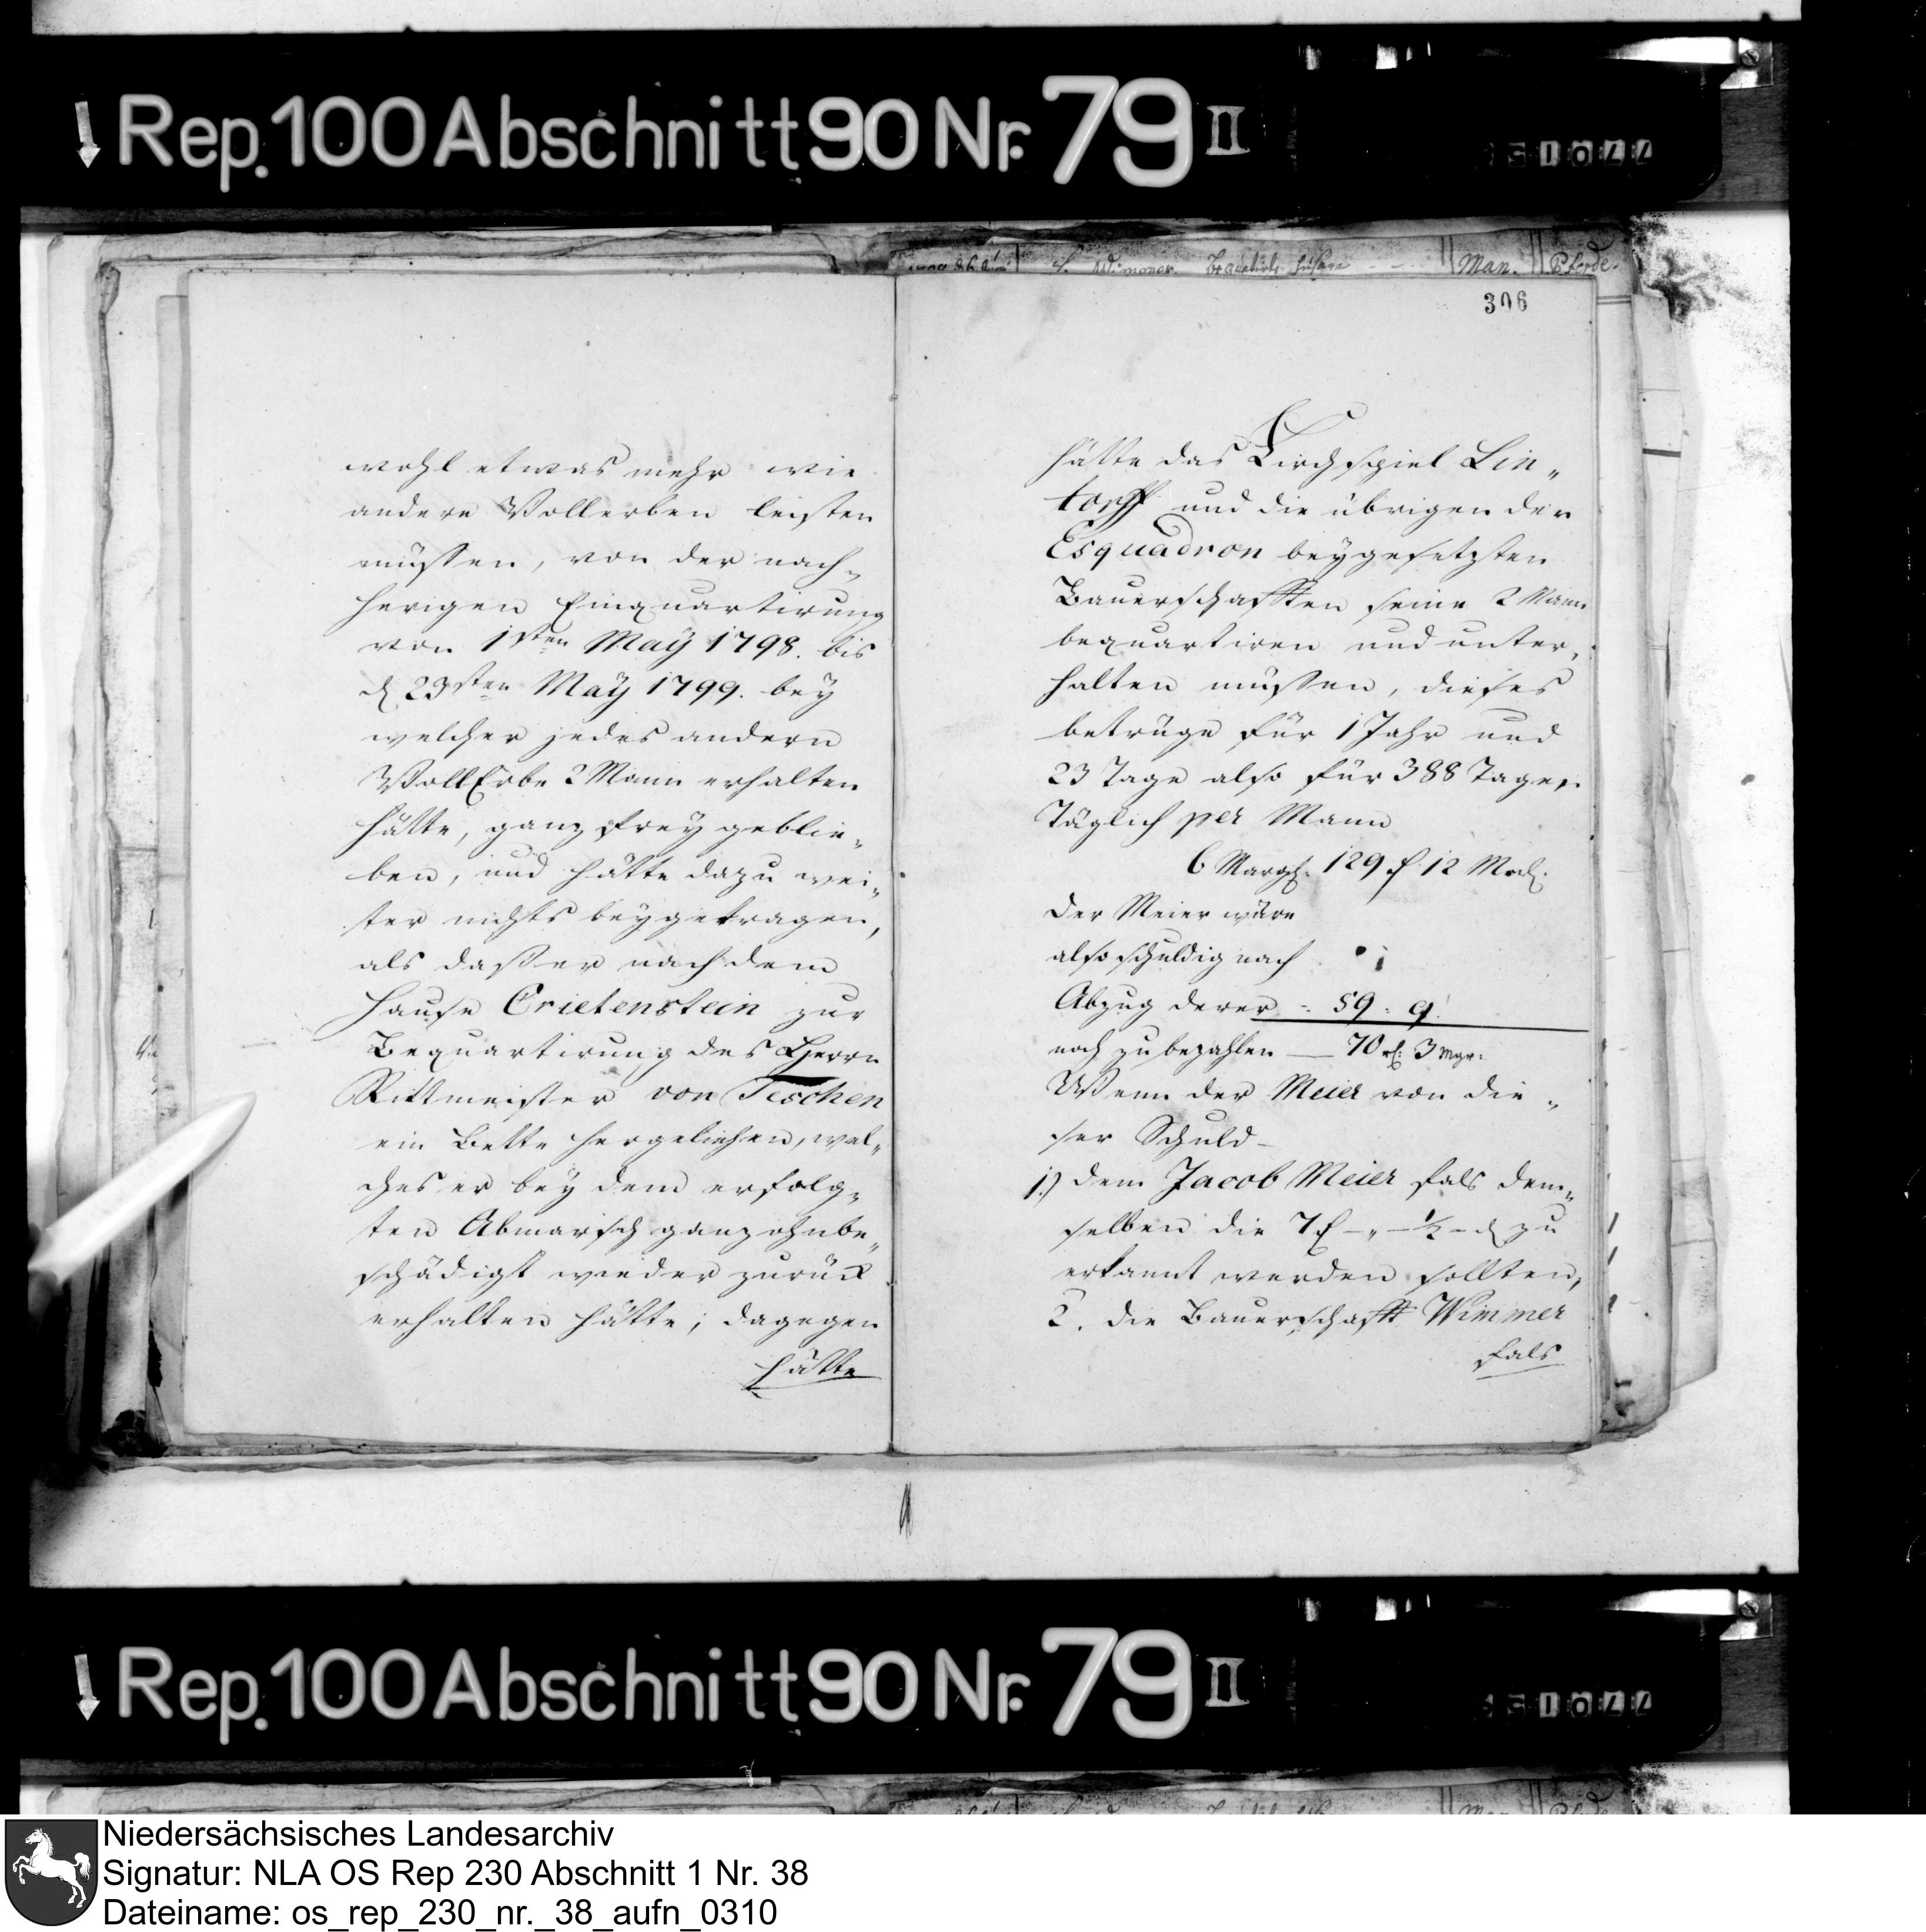 Rep. 100 Abschnitt 90 Nr. 79 II
Man. Pferde.
306
wohl etwas mehr wie
andere Vollerben leisten
müssen, von der nach-
herigen Einquartirung
von 1sten Maÿ 1798. bis
d. 23sten Maÿ 1799. beÿ
welcher jedes andern
VollErbe 2 Mann erhalten
hätte, ganz freÿ geblie-
ben, und hätte dazu wei-
ter nichts beÿgetragen,
als daß er nach dem
Hause Crietenstein zur
Bequartirung des Herrn
Rittmeister von Teschen
ein Bette hergeliehen, wel-
ches er beÿ dem erfolg-
ten Abmarsch ganz ohnbe-
schädigt wieder zurück
erhalten hätte; dagegen
hätte
hätte das Kirchspiel Lin-
torff und die übrigen der
Esquadron beÿgesetzten
Bauerschafften seine 2 Mann
bequartiren und unter-
halten müssen, dieses
betrüge für 1 Jahr und
23 Tage also für 388 Tage,
Täglich per Mann
6 Margs. 129 f 12 Mrd.
Der Meier wäre
also schuldig nach
Abzug derer - 59 : 9
noch zu bezahlen — 70 rl: 3 mgr:
Wenn der Meier von die-
ser Schuld
1.) dem Jacob Meier fals dem-
selben die 7 f - „ - ½ - d zu
erkannt werden sollten,
2. die Bauerschafft Wimmer
fals
Rep. 100 Abschnitt 90 Nr. 79 II
Niedersächsisches Landesarchiv
Signatur: NLA OS Rep 230 Abschnitt 1 Nr. 38
Dateiname: os_rep_230_nr._38_aufn_0310